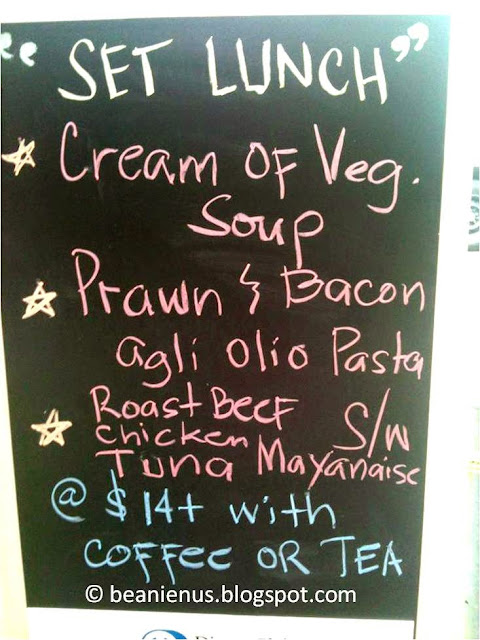 “ SET LUNCH ”
☆ Cream OF Veg.
Soup
☆ Prawn & Bacon
agli olio Pasta
☆ Roast Beef
chicken S/W
Tuna Mayanaise
@ $14+ with
COFFee OR TEA
© beanienus.blogspot.com